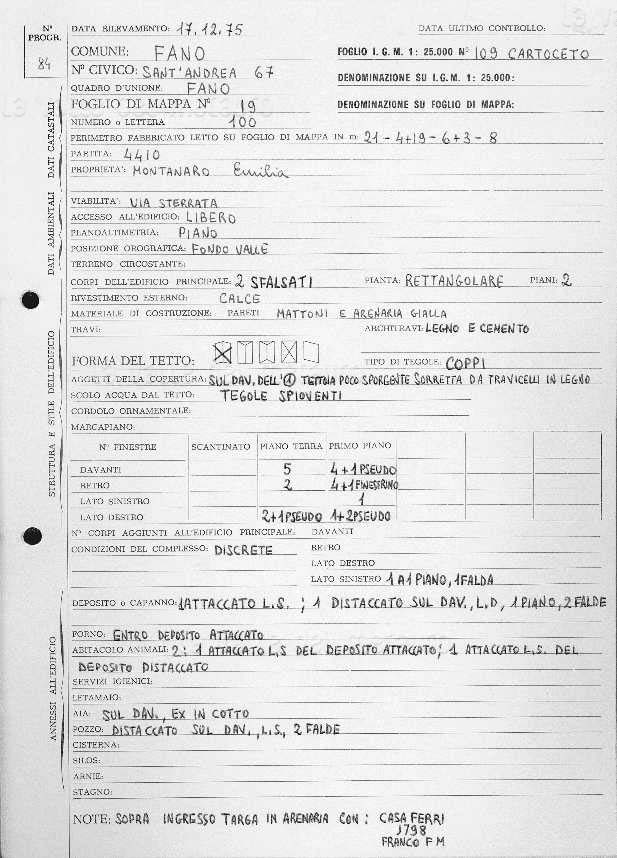 Nº PROGR.
84
DATA RILEVAMENTO: 17.12.75 DATA ULTIMO CONTROLLO:
COMUNE: FANO FOGLIO I. G. M. 1: 25.000 Nº 109 CARTOCETO
Nº CIVICO: SANT'ANDREA 67 DENOMINAZIONE SU I.G.M. 1: 25.000:
QUADRO D'UNIONE: FANO
FOGLIO DI MAPPA Nº 19 DENOMINAZIONE SU FOGLIO DI MAPPA:
NUMERO o LETTERA 100
PERIMETRO FABBRICATO LETTO SU FOGLIO DI MAPPA IN m: 21-4+19-6+3-8
PARTITA: 4410
PROPRIETA': MONTANARO Emilia
DATI CATASTALI
VIABILITA': VIA STERRATA
ACCESSO ALL'EDIFICIO: LIBERO
PLANOALTIMETRIA: PIANO
POSIZIONE OROGRAFICA: FONDO VALLE
TERRENO CIRCOSTANTE:
DATI AMBIENTALI
CORPI DELL'EDIFICIO PRINCIPALE: 2 SFALSATI PIANTA: RETTANGOLARE PIANI: 2
RIVESTIMENTO ESTERNO: CALCE
MATERIALE DI COSTRUZIONE: PARETI MATTONI E ARENARIA GIALLA
TRAVI: ARCHITRAVI: LEGNO E CEMENTO
FORMA DEL TETTO: TIPO DI TEGOLE: COPPI
AGGETTI DELLA COPERTURA: SUL DAV. DELL'(1) TETTOIA POCO SPORGENTE SORRETTA DA TRAVICELLI IN LEGNO
SCOLO ACQUA DAL TETTO: TEGOLE SPIOVENTI
CORDOLO ORNAMENTALE:
MARCAPIANO:
Nº FINESTRE SCANTINATO PIANO TERRA PRIMO PIANO
DAVANTI 5 4+1PSEUDO
RETRO 2 4+1FINESTRINO
LATO SINISTRO 1
LATO DESTRO 2+1PSEUDO 1+2PSEUDO
STRUTTURA E STILE DELL'EDIFICIO
Nº CORPI AGGIUNTI ALL'EDIFICIO PRINCIPALE: DAVANTI
CONDIZIONI DEL COMPLESSO: DISCRETE RETRO
LATO DESTRO
LATO SINISTRO 1 A 1 PIANO, 1 FALDA
DEPOSITO o CAPANNO: 1ATTACCATO L.S. ; 1 DISTACCATO SUL DAV., L.D, 1 PIANO, 2 FALDE
FORNO: ENTRO DEPOSITO ATTACCATO
ABITACOLO ANIMALI: 2: 1 ATTACCATO L.S DEL DEPOSITO ATTACCATO; 1 ATTACCATO L.S. DEL
DEPOSITO DISTACCATO
SERVIZI IGIENICI:
LETAMAIO:
AIA: SUL DAV., EX IN COTTO
POZZO: DISTACCATO SUL DAV., L.S., 2 FALDE
CISTERNA:
SILOS:
ARNIE:
STAGNO:
ANNESSI ALL'EDIFICIO
NOTE: SOPRA INGRESSO TARGA IN ARENARIA CON: CASA FERRI
1798
FRANCO F M